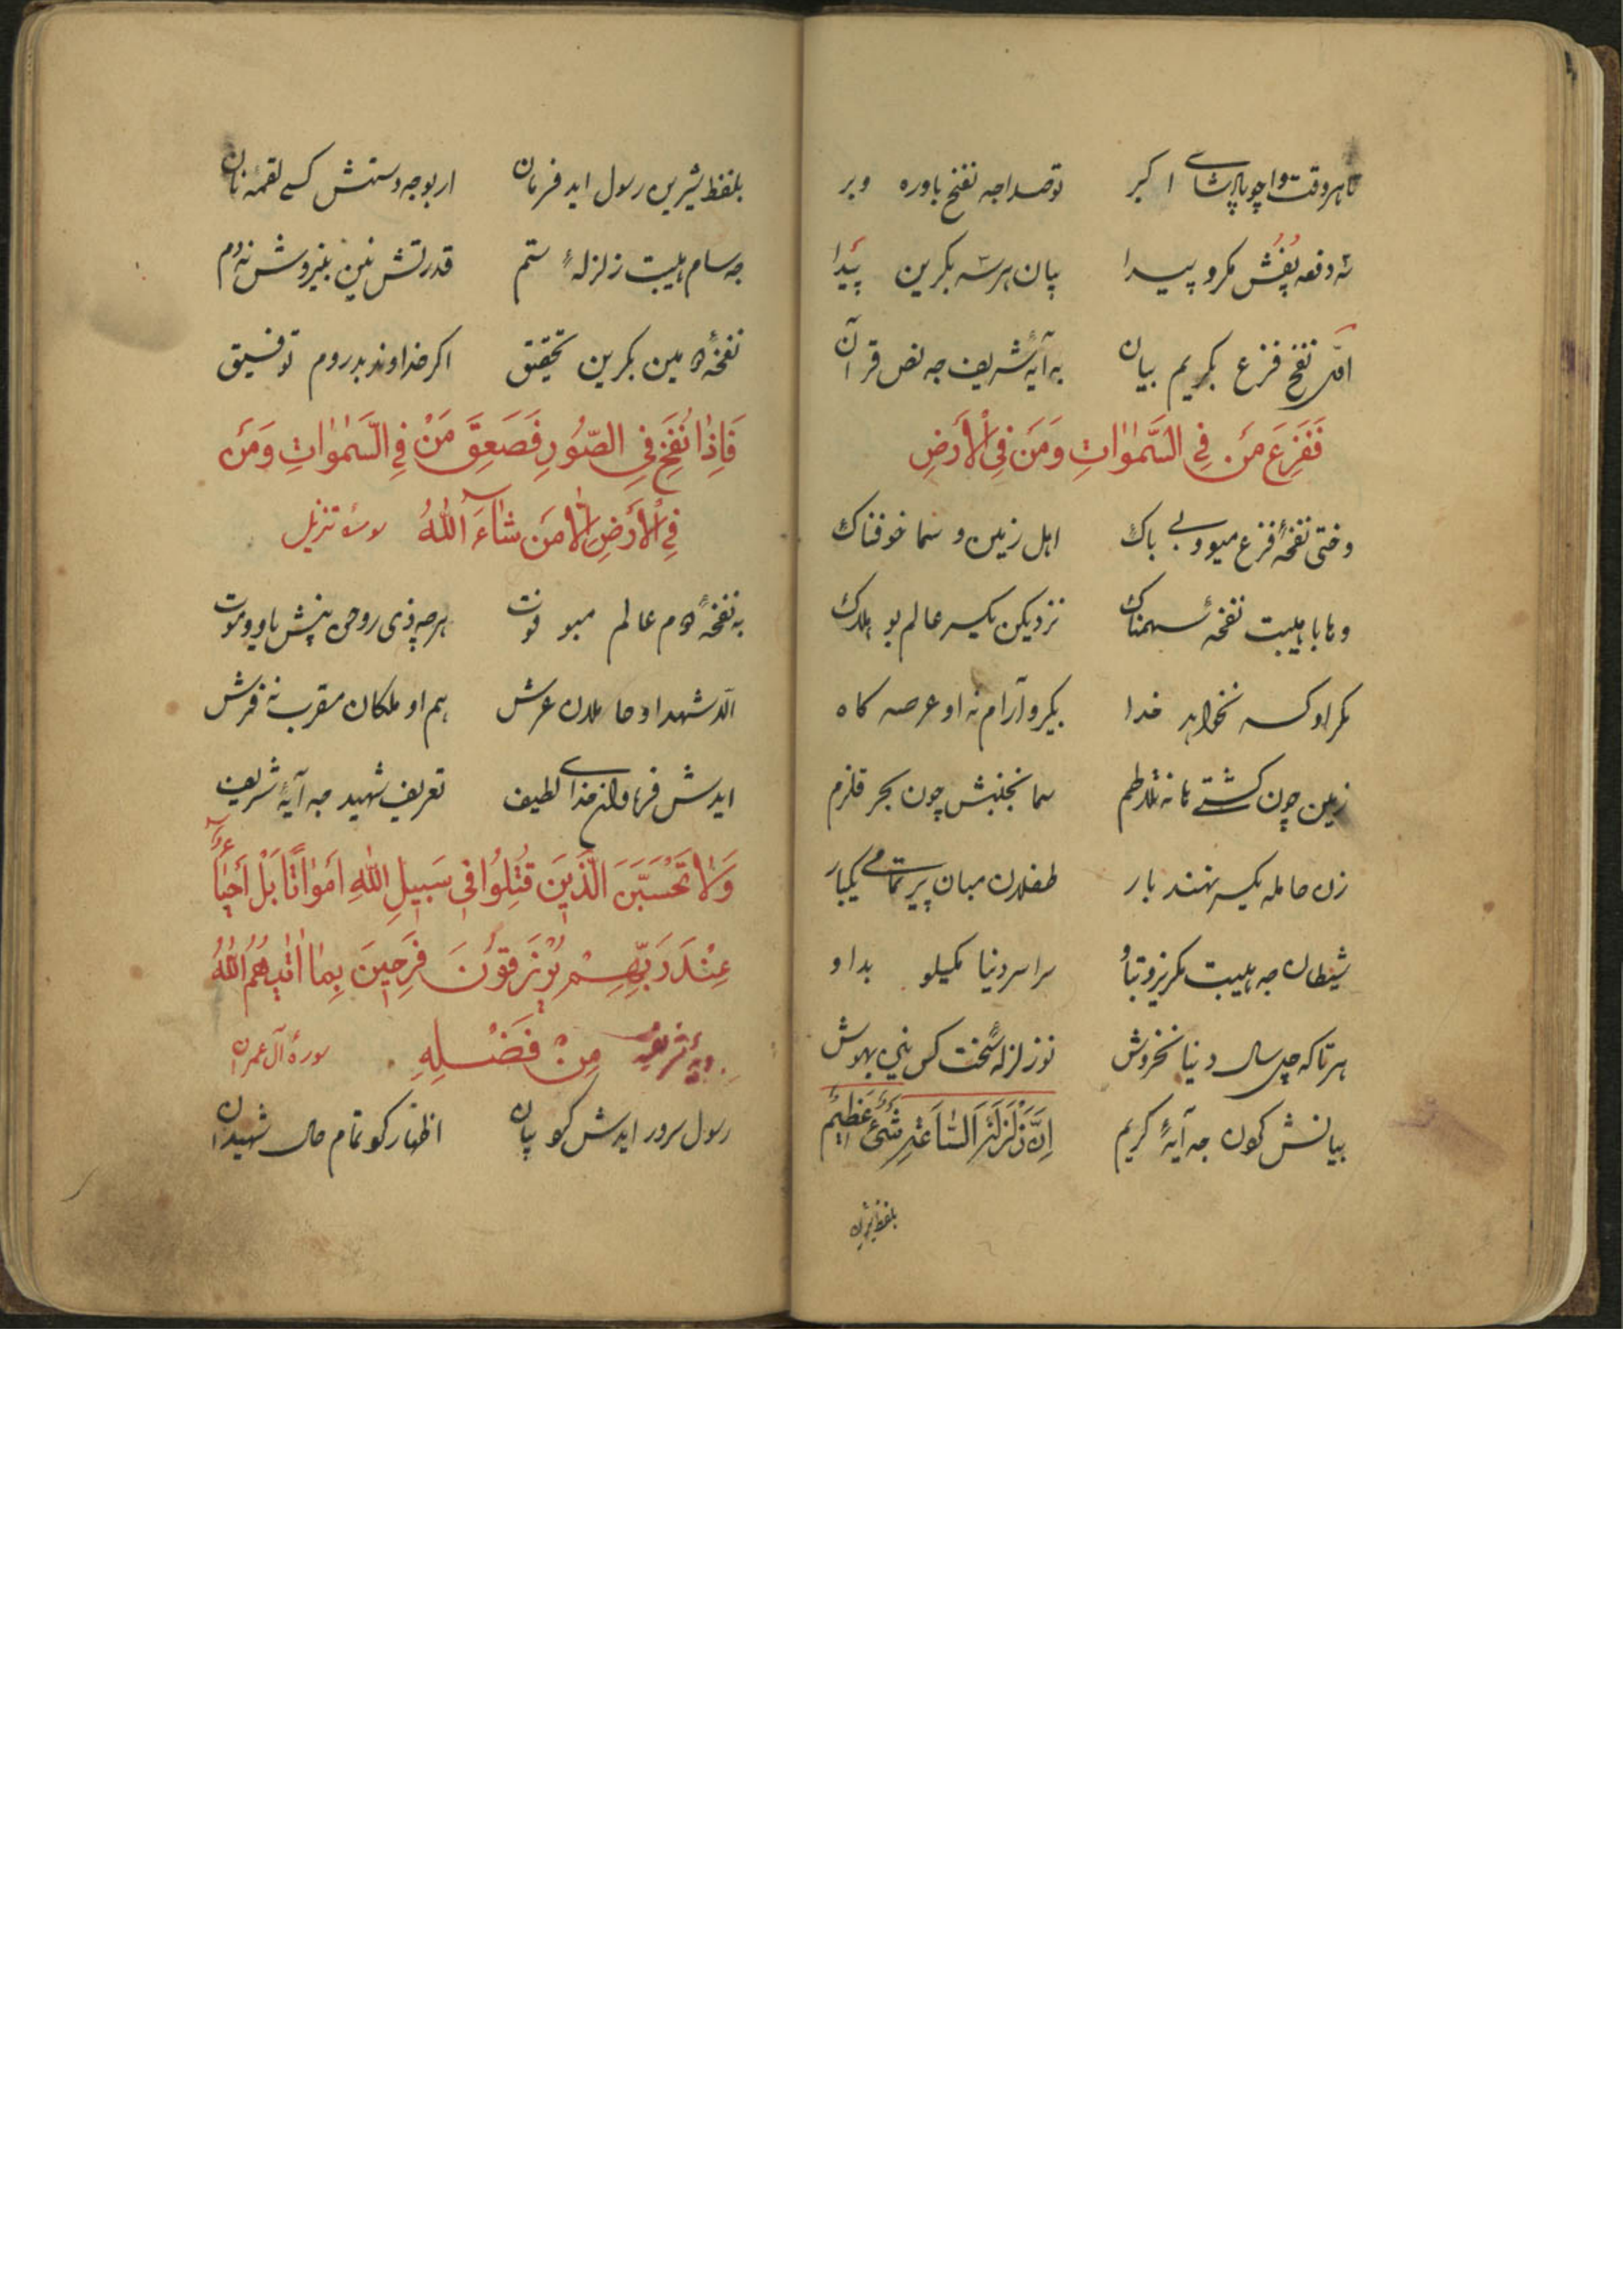 تا هر وقت واچو پادشای اکبر توصدا جه نفخ باوره وبر
سه دفعه پفش مکرو پیدا پان هرسه بکرین پیدا
اول نفخ فزع بکریم بیان به آیهٔ شریف جه نص قرآن
فَفَزِعَ مَن فِي السَّمٰوٰاتِ وَمَن فِي الْأَرْضِ
وختی نفخهٔ فزع میو وبی باک اهل زمین و سما خوفناک
وهابا هیبت نفخهٔ سهمناک نزدیکن یکسر عالم بو هلاک
مکر او کسه نخواهد خدا بکیرو آرام نه او عرصه کاه
زمین چون کشتی مانه تلاطم سما نجنبش چون بحر قلزم
زن حامله یکسر نهند بار طفلان میان پیر تمامی یکبار
شیطان جه هیبت مکریزو تاو سراسر دنیا مکیلو بداو
هرتا که چل سال دنیا نخروش نوزلزله سخت کس نیی بهوش
بیانش کون جه آیهٔ کریم اِنَّ زَلْزَلَةَ السَّاعَةِ شَيْءٌ عَظِيمٌ
بلفظ شیرین
بلفظ شیرین رسول اید فرمان ار بوجه دستش کسی لقمه نان
جه سام هیبت زلزلهٔ ستم قدرتش نین بنیروش نه دم
نفخهٔ دومین بکرین تحقیق اکر خداوند بدروم توفیق
فَاِذٰا نُفِخَ فِي الصُّورِ فَصَعِقَ مَنْ فِي السَّمٰوٰاتِ وَمَن
فِي الْأَرْضِ اِلَّا مَن شٰاءَ اللّٰهُ سورهٔ تنزیل
به نفخهٔ دوم عالم مبو فوت هرچه ذی روحن پنش باو وموت
الا شهدا و حاملان عرش هم او ملکان مقرب نه فرش
ایدش فرماوان خدای لطیف تعریف شهید جه آیهٔ شریف
وَلَا تَحْسَبَنَّ الَّذِينَ قُتِلُوا فِي سَبِيلِ اللّٰهِ اَمْوٰاتًا بَلْ اَحْيٰاءٌ
عِنْدَ رَبِّهِمْ يُرْزَقُونَ فَرِحِينَ بِمٰا اٰتٰيهُمُ اللّٰهُ
مِنْ فَضْلِهِ سورهٔ آل عمران
رسول سرور ایدش کو بیان اظهار کو تمام حال شهیدان